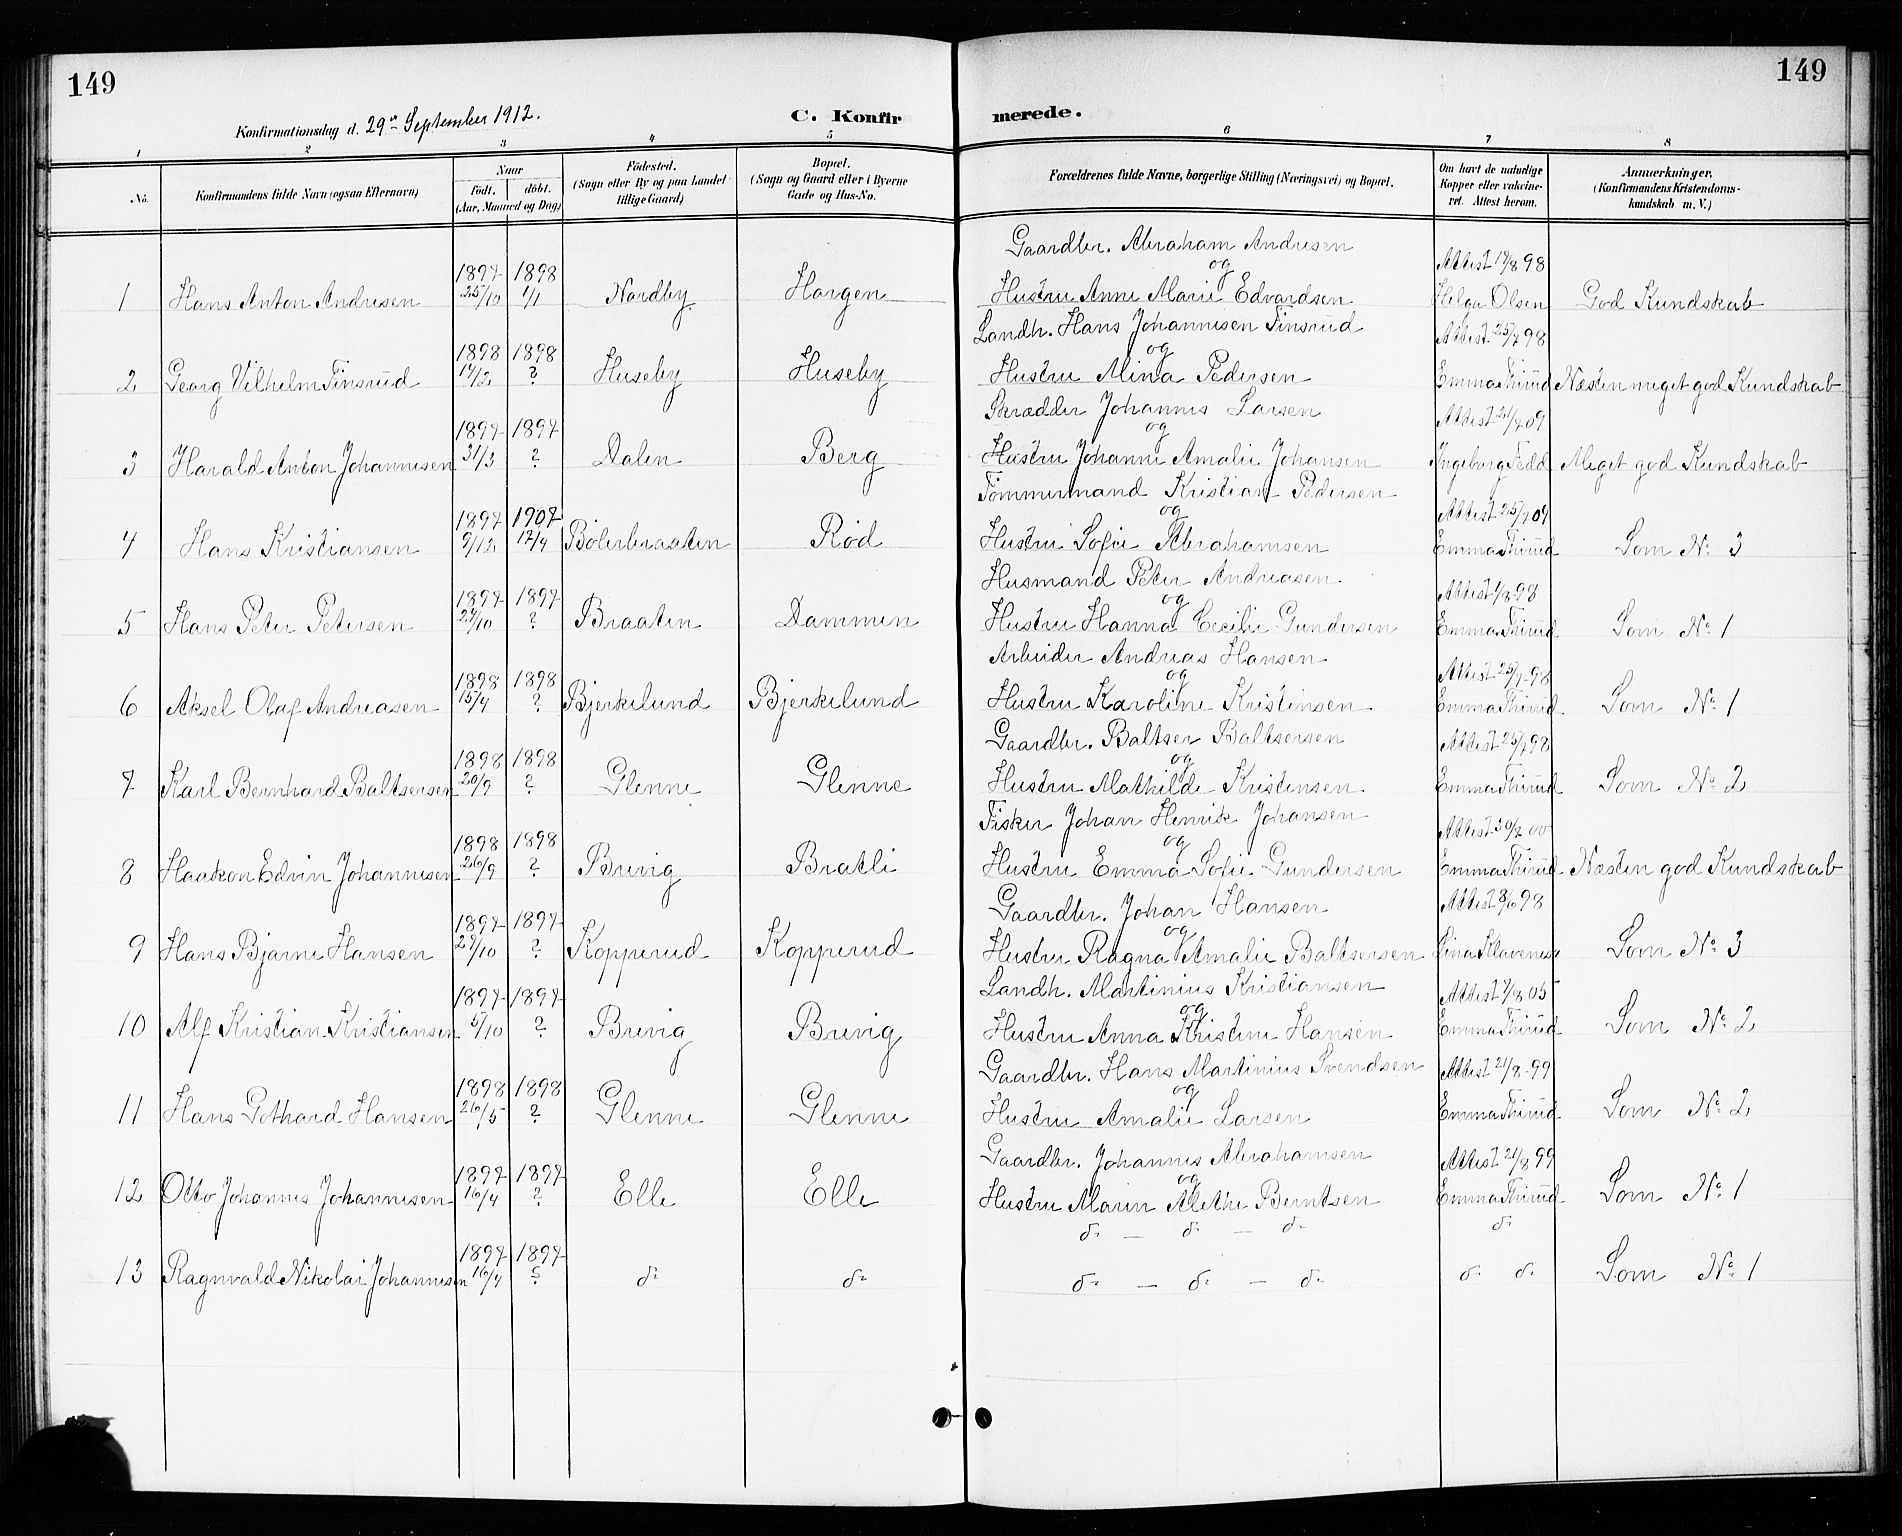 149
149
Konfirmationsdag d. 29de September 1912.
C. Konfir
merede.
1 2 3 4 5 6 7 8
No.
Konfirmandens fulde Navn (ogsaa Efternavn)
Naar
födt. döbt.
(Aar, Maaned og Dag)
Födested.
(Sogn eller By og paa Landet
tillige Gaard)
Bopæl.
(Sogn og Gaard eller i Byerne
Gade og Hus-No.
Forældrenes fulde Navne, borgerlige Stilling (Næringsvei) og Bopæl.
Om havt de naturlige
Kopper eller vakcine-
ret. Attest herom.
Anmærkninger.
(Konfirmandens Kristendoms-
kundskab m. V.)
Gaardbr. Abraham Andresen
og
1897 1898 Attest 19/8 98
1 Hans Anton Andresen 25/10 1/1 Nordby Horgen Hustru Anne Marie Edvardsen Helga Olsen God Kundskab
Landh. Hans Johannesen Finsrud
og
1898 1898 Attest 25/7 98
2 Georg Vilhelm Finsrud 17/2 ? Huseby Huseby Hustru Mina Pedersen Emma Thirud Næsten meget god Kundskab
Skrædder Johannes Larsen
og
1897 1897 Attest 21/7 09
3 Harald Anton Johannesen 31/3 ? Dalen Berg Hustru Johanne Amalie Johansen Ingeborg Fedd Meget god Kundskab
Tømmermand Kristian Pedersen
og
1897 1907 Attest 25/7 04
4 Hans Kristiansen 9/12 17/4 Bölerbraaten Röd Hustru Sofie Abrahamsen Emma Thirud Som No. 3
Husmand Peter Andreasen
og
1897 1897 Attest 1/8 98
5 Hans Peter Petersen 27/10 ? Braaten Dammen Hustru Hanna Cecilie Gundersen Emma Thirud Som No. 1
Arbeider Andreas Hansen
og
1898 1898 Attest 25/7 98
6 Aksel Olaf Andreasen 15/4 ? Bjerkelund Bjerkelund Hustru Karoline Kristinsen Emma Thirud Som No. 1
Gaardbr. Baltser Baltsersen
og
1898 1898 Attest 25/7 98
7 Karl Bernhard Baltsersen 20/9 ? Glenne Glenne Hustru Mathilde Kristensen Emma Thirud Som No. 2
Fisker Johan Henrik Johansen
og
1898 1898 Attest 30/7 00
8 Haakon Edvin Johannesen 26/9 ? Brevig Bratli Hustru Emma Sofie Gundersen Emma Thirud Næsten god Kundskab
Gaardbr. Johan Hansen
og
1897 1897 Attest 8/6 98
9 Hans Bjarne Hansen 29/10 ? Kopperud Kopperud Hustru Ragna Amalie Baltsersen Lina Klaveness Som No. 3
Landh. Martinius Kristiansen
og
1897 1897 Attest 7/8 05
10 Alf Kristian Kristiansen 5/10 ? Brevig Brevig Hustru Anna Kristine Hansen Emma Thirud Som No. 2
Gaardbr. Hans Martinius Svendsen
og
1898 1898 Attest 21/8 99
11 Hans Gothard Hansen 26/5 ? Glenne Glenne Hustru Amalie Larsen Emma Thirud Som No. 2
Gaardbr. Johannes Abrahamsen
og
1897 1897 Attest 21/8 99
12 Otto Johannes Johannesen 16/4 ? Elle Elle Hustru Maren Alethe Berntsen Emma Thirud Som No. 1
do — do — do do
1897 1897
13 Ragnvald Nikolai Johannesen 16/4 ? do do do — do — do do do Som No. 1